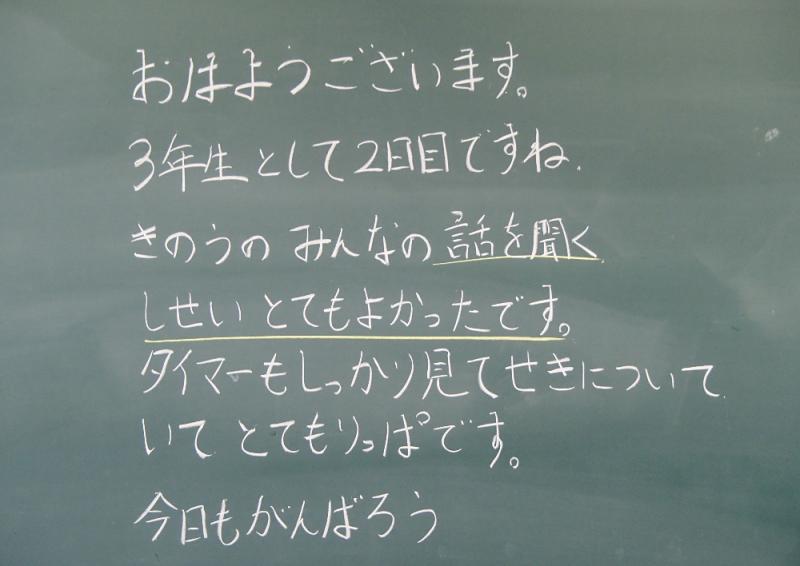 おはようございます。
3年生として2日目ですね.
きのうの みんなの 話を聞く
しせい とてもよかったです。
タイマーもしっかり見てせきについて
いて とてもりっぱです。
今日もがんばろう